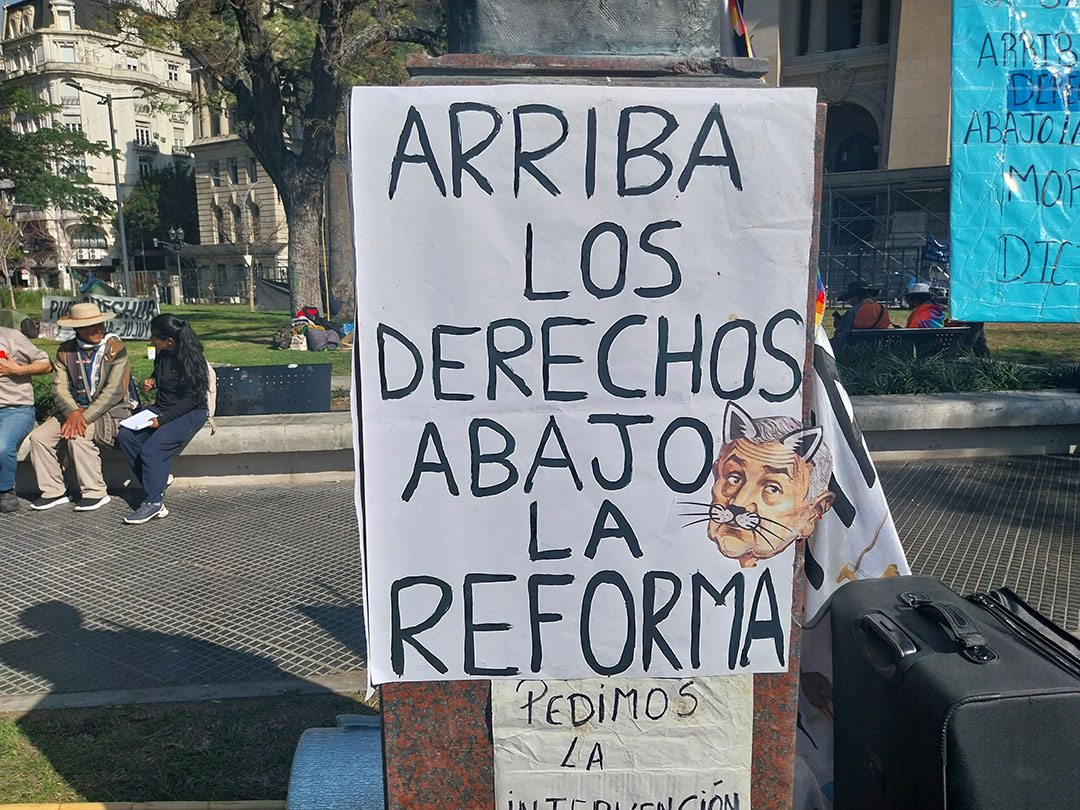 ARRIBA
LOS
DERECHOS
ABAJO
LA
REFORMA
PEDIMOS
LA
INTERVENCIÓN
ARRIB
ABAJO LA
MOR
DIC
JUJUY